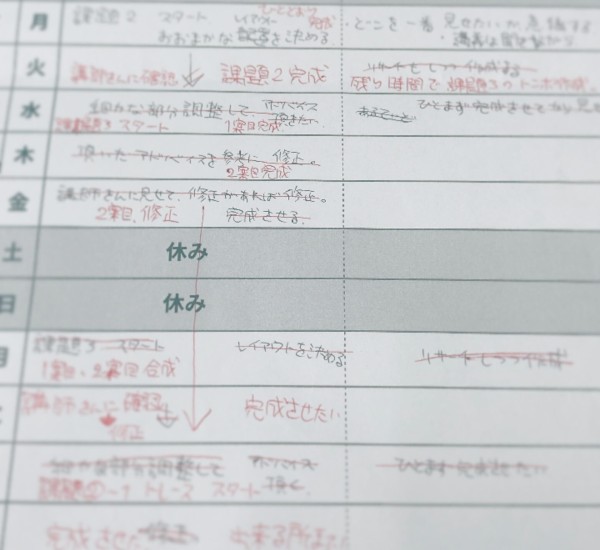 月 課題2 スタート レイアウト ひととおり完成
おおまかな 配置を決める。
火 講師さんに確認 課題2完成
残り時間で 課題3の
水 細かな部分調整して、アドバイス頂きたい。
課題3 スタート 1案目完成
ひとまず完成させて
木 頂いたアドバイスを参考に 修正。
2案目完成
金 講師さんに見せて、修正があれば修正。
2案目、修正 完成させる。
土 休み
日 休み
月 課題3 スタート レイアウトを決める リサーチしつつ作成
1案目、2案目 合成
講師さんに確認 完成させたい
修正
細かな部分調整して アドバイス ひとまず完成させたい
トレース スタート 頂く。
完成させた